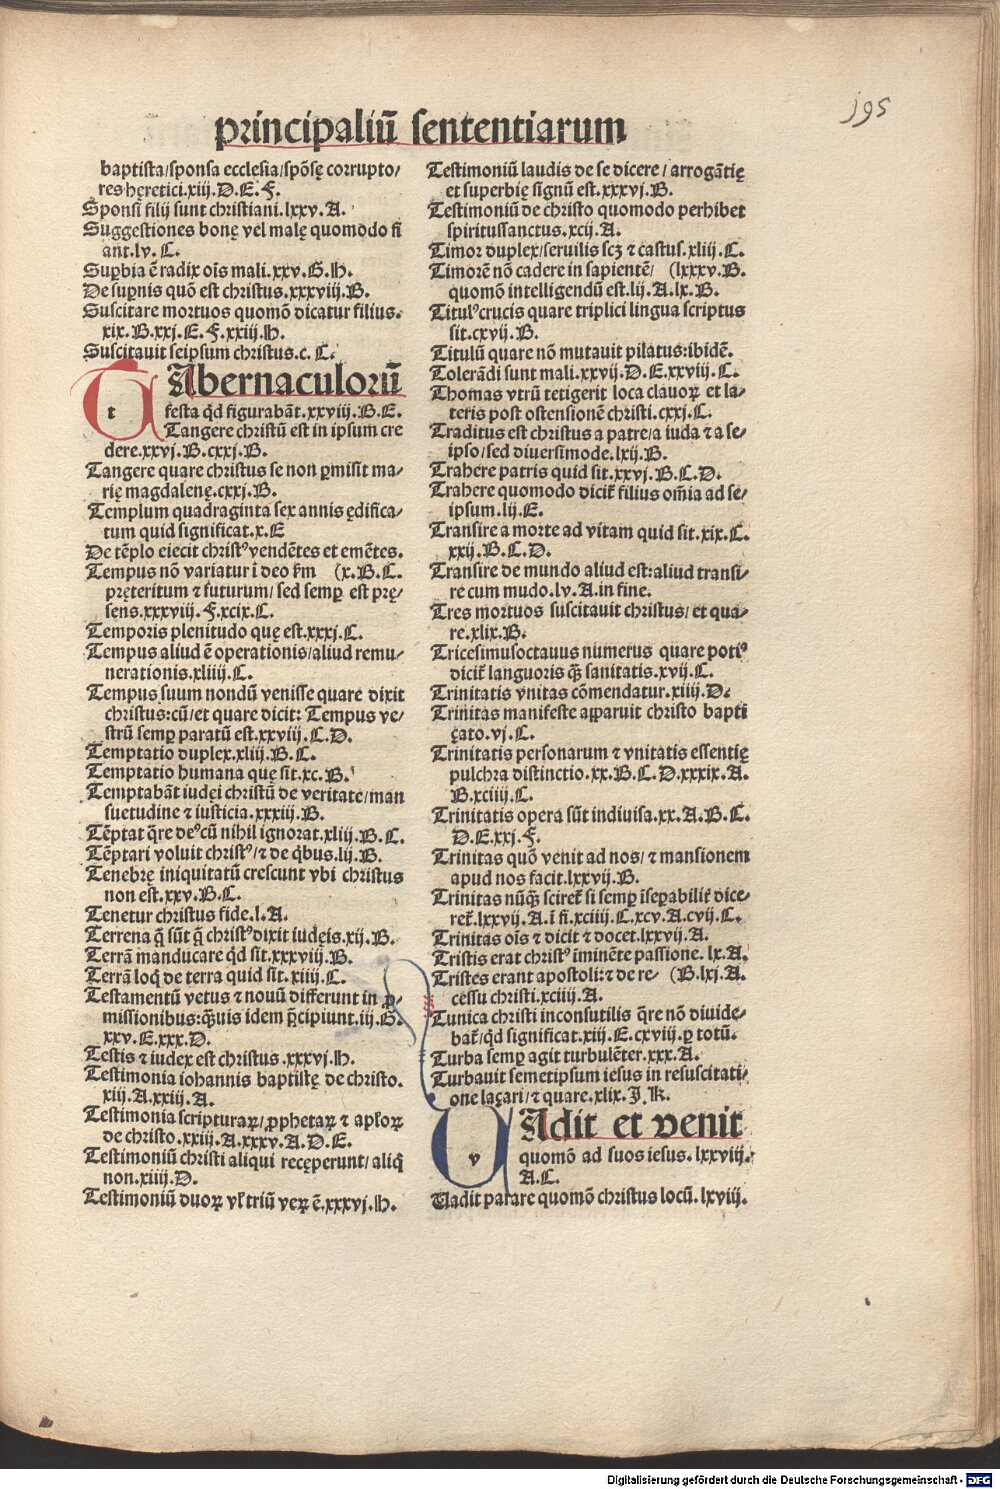 195
principaliū sententiarum
baptista/sponsa ecclesia/spōsę corrupto/
res hęretici.xiij.D.E.F.
Sponsi filij sunt christiani.lxxv.A.
Suggestiones bonę vel malę quomodo fi
ant.lv.C.
Supbia ē radix oīs mali.xxv.G.H.
De supnis quō est christus.xxxviij.B.
Suscitare mortuos quomō dicatur filius.
xix.B.xxj.E.F.xxiij.H.
Suscitauit seipsum christus.c.C.
t Abernaculorū
festa qd̄ figurabāt.xxviij.B.E.
Tangere christū est in ipsum cre
dere.xxvj.B.cxxj.B.
Tangere quare christus se non ꝑmisit ma/
rię magdalenę.cxxj.B.
Templum quadraginta sex annis ędifica/
tum quid significat.x.E
De tēplo eiecit christꝰ vendētes et emētes.
Tempus nō variatur ī deo fm̄ (x.B.C.
pręteritum ⁊ futurum/ sed semꝑ est prę/
sens.xxxviij.F.xcix.C.
Temporis plenitudo quę est.xxxj.C.
Tempus aliud ē operationis/aliud remu/
nerationis.xliiij.C.
Tempus suum nondū venisse quare dixit
christus:cū/et quare dicit: Tempus ve/
strū semꝑ paratū est.xxviij.C.D.
Temptatio duplex.xliij.B.C.
Temptatio humana quę sit.xc.B.
Temptabāt iudei christū de veritate/man
suetudine ⁊ iusticia.xxxiij.B.
Tēptat q̄re deꝰ cū nihil ignorat.xliij.B.C.
Tēptari voluit christꝰ/⁊ de q̄bus.lij.B.
Tenebrę iniquitatū crescunt vbi christus
non est.xxv.B.C.
Tenetur christus fide.l.A.
Terrena q̄ sūt q̄ christꝰ dixit iudęis.xij.B.
Terrā manducare qd̄ sit.xxxviij.B.
Terrā loq̄ de terra quid sit.xiiij.C.
Testamentū vetus ⁊ nouū differunt in ꝓ/
missionibus:q̄uis idem p̄cipiunt.iij.G.
xxv.E.xxx.D.
Testis ⁊ iudex est christus.xxxvj.H.
Testimonia iohannis baptistę de christo.
xiij.A.xxiij.A.
Testimonia scripturaꝝ/ꝓphetaꝝ ⁊ apl̄oꝝ
de christo.xxiij.A.xxxv.A.D.E.
Testimoniū christi aliqui recęperunt/aliq̄
non.xiiij.D.
Testimoniū duoꝝ vl̄ triū veꝝ ē.xxxvj.H.
Testimoniū laudis de se dicere/arrogātię
et superbię signū est.xxxvj.B.
Testimoniū de christo quomodo perhibet
spiritussanctus.xcij.A.
Timor duplex/seruilis scꝫ ⁊ castus.xliij.C.
Timorē nō cadere in sapientē/ (lxxxv.B.
quomō intelligendū est.lij.A.lx.B.
Titulꝰ crucis quare triplici lingua scriptus
sit.cxvij.B.
Titulū quare nō mutauit pilatus:ibidē.
Tolerādi sunt mali.xxvij.D.E.xxviij.C.
Thomas vtrū tetigerit loca clauoꝝ et la/
teris post ostensionē christi.cxxj.C.
Traditus est christus a patre/a iuda ⁊ a se/
ipso/sed diuersimode.lxij.B.
Trahere patris quid sit.xxvj.B.C.D.
Trahere quomodo dicit̄ filius om̄ia ad se/
ipsum.lij.E.
Transire a morte ad vitam quid sit.xix.C.
xxij.B.C.D.
Transire de mundo aliud est:aliud transi/
re cum mudo.lv.A.in fine.
Tres mortuos suscitauit christus/ et qua/
re.xlix.B.
Tricesimusoctauus numerus quare potiꝰ
dicit̄ languoris q̄ꝫ sanitatis.xvij.C.
Trinitatis vnitas cōmendatur.xiiij.D.
Trinitas manifeste apparuit christo bapti
çato.vj.C.
Trinitatis personarum ⁊ vnitatis essentię
pulchra distinctio.xx.B.C.D.xxxix.A.
B.xciiij.C.
Trinitatis opera sūt indiuisa.xx.A.B.C.
D.E.xxj.F.
Trinitas quō venit ad nos/⁊ mansionem
apud nos facit.lxxvij.B.
Trinitas nūq̄ꝫ sciret̄ si semꝑ īseꝑabilit̄ dice/
ret̄.lxxvij.A.ī fi.xciiij.C.xcv.A.cvij.C.
Trinitas oīs ⁊ dicit ⁊ docet.lxxvij.A.
Tristis erat christꝰ īminēte passione. lx.A.
Tristes erant apostoli:⁊ de re/ (B.lxj.A.
cessu christi.xciiij.A.
Tunica christi inconsutilis q̄re nō diuide/
bat̄/qd̄ significat.xiij.E.cxviij.ꝑ totū.
Turba semꝑ agit turbulēter.xxx.A.
Turbauit semetipsum iesus in resuscitati/
one laçari/⁊ quare.xlix.J.K.
v Adit et venit
quomō ad suos iesus.lxxviij.
A.C.
Uadit parare quomō christus locū.lxviij.
Digitalisierung gefördert durch die Deutsche Forschungsgemeinschaft - DFG